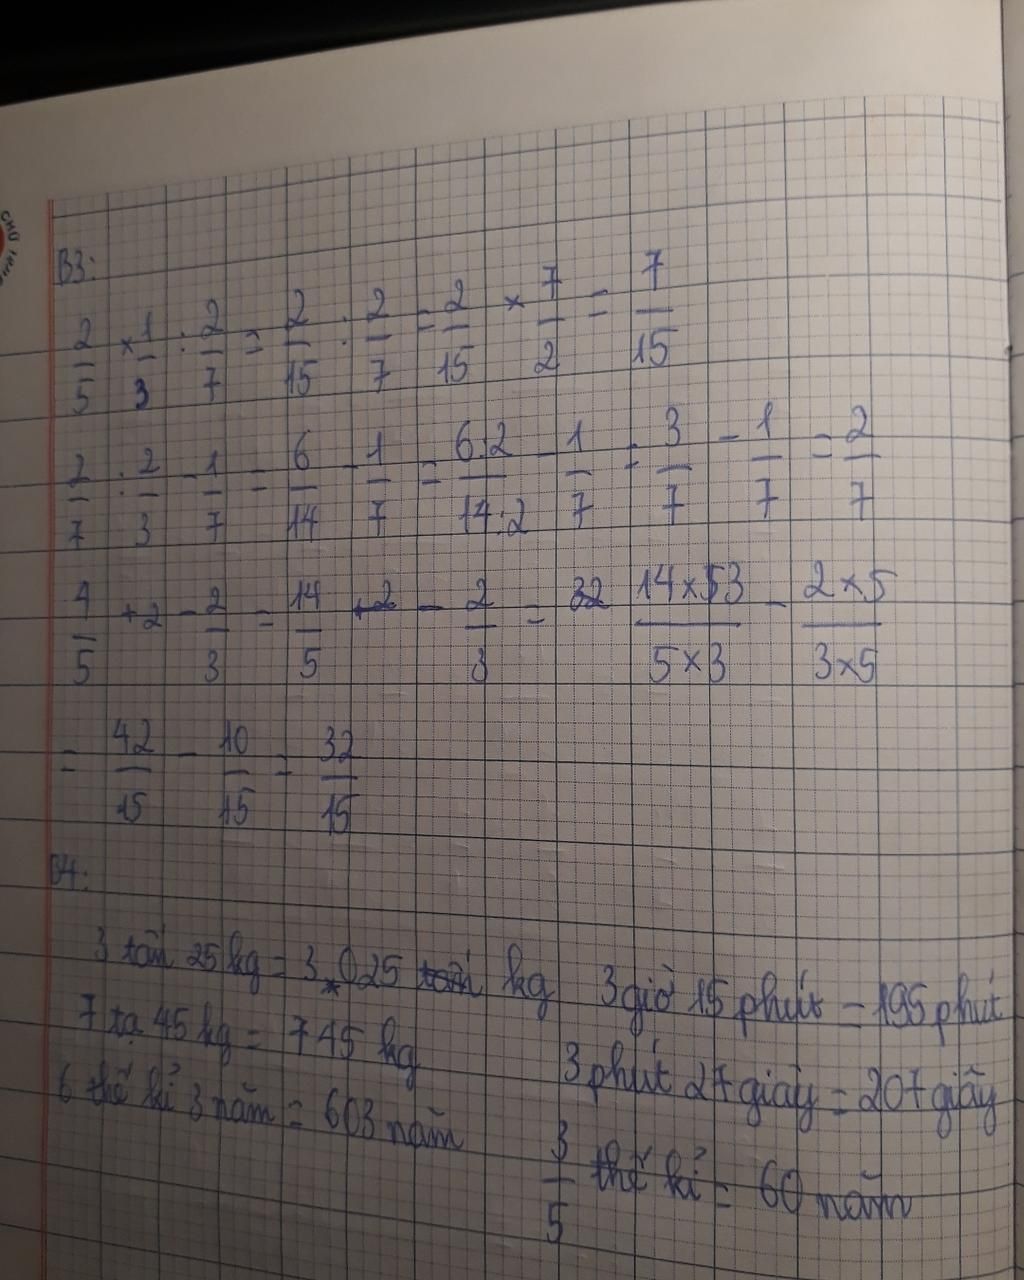 B3:
2/5 × 1/3 : 2/7 = 2/15 : 2/7 = 2/15 × 7/2 = 7/15
2/7 : 2/3 - 1/7 = 6/14 - 1/7 = 6:2/14:2 - 1/7 = 3/7 - 1/7 = 2/7
4/5 + 2 - 2/3 = 14/5 - 2/3 = 14×3/5×3 - 2×5/3×5
= 42/15 - 10/15 = 32/15
B4:
3 tấn 25 kg = 3025 kg 3 giờ 15 phút = 195 phút
7 tạ 45 kg = 745 kg 3 phút 27 giây = 207 giây
6 thế kỉ 3 năm = 603 năm 3/5 thế kỉ = 60 năm